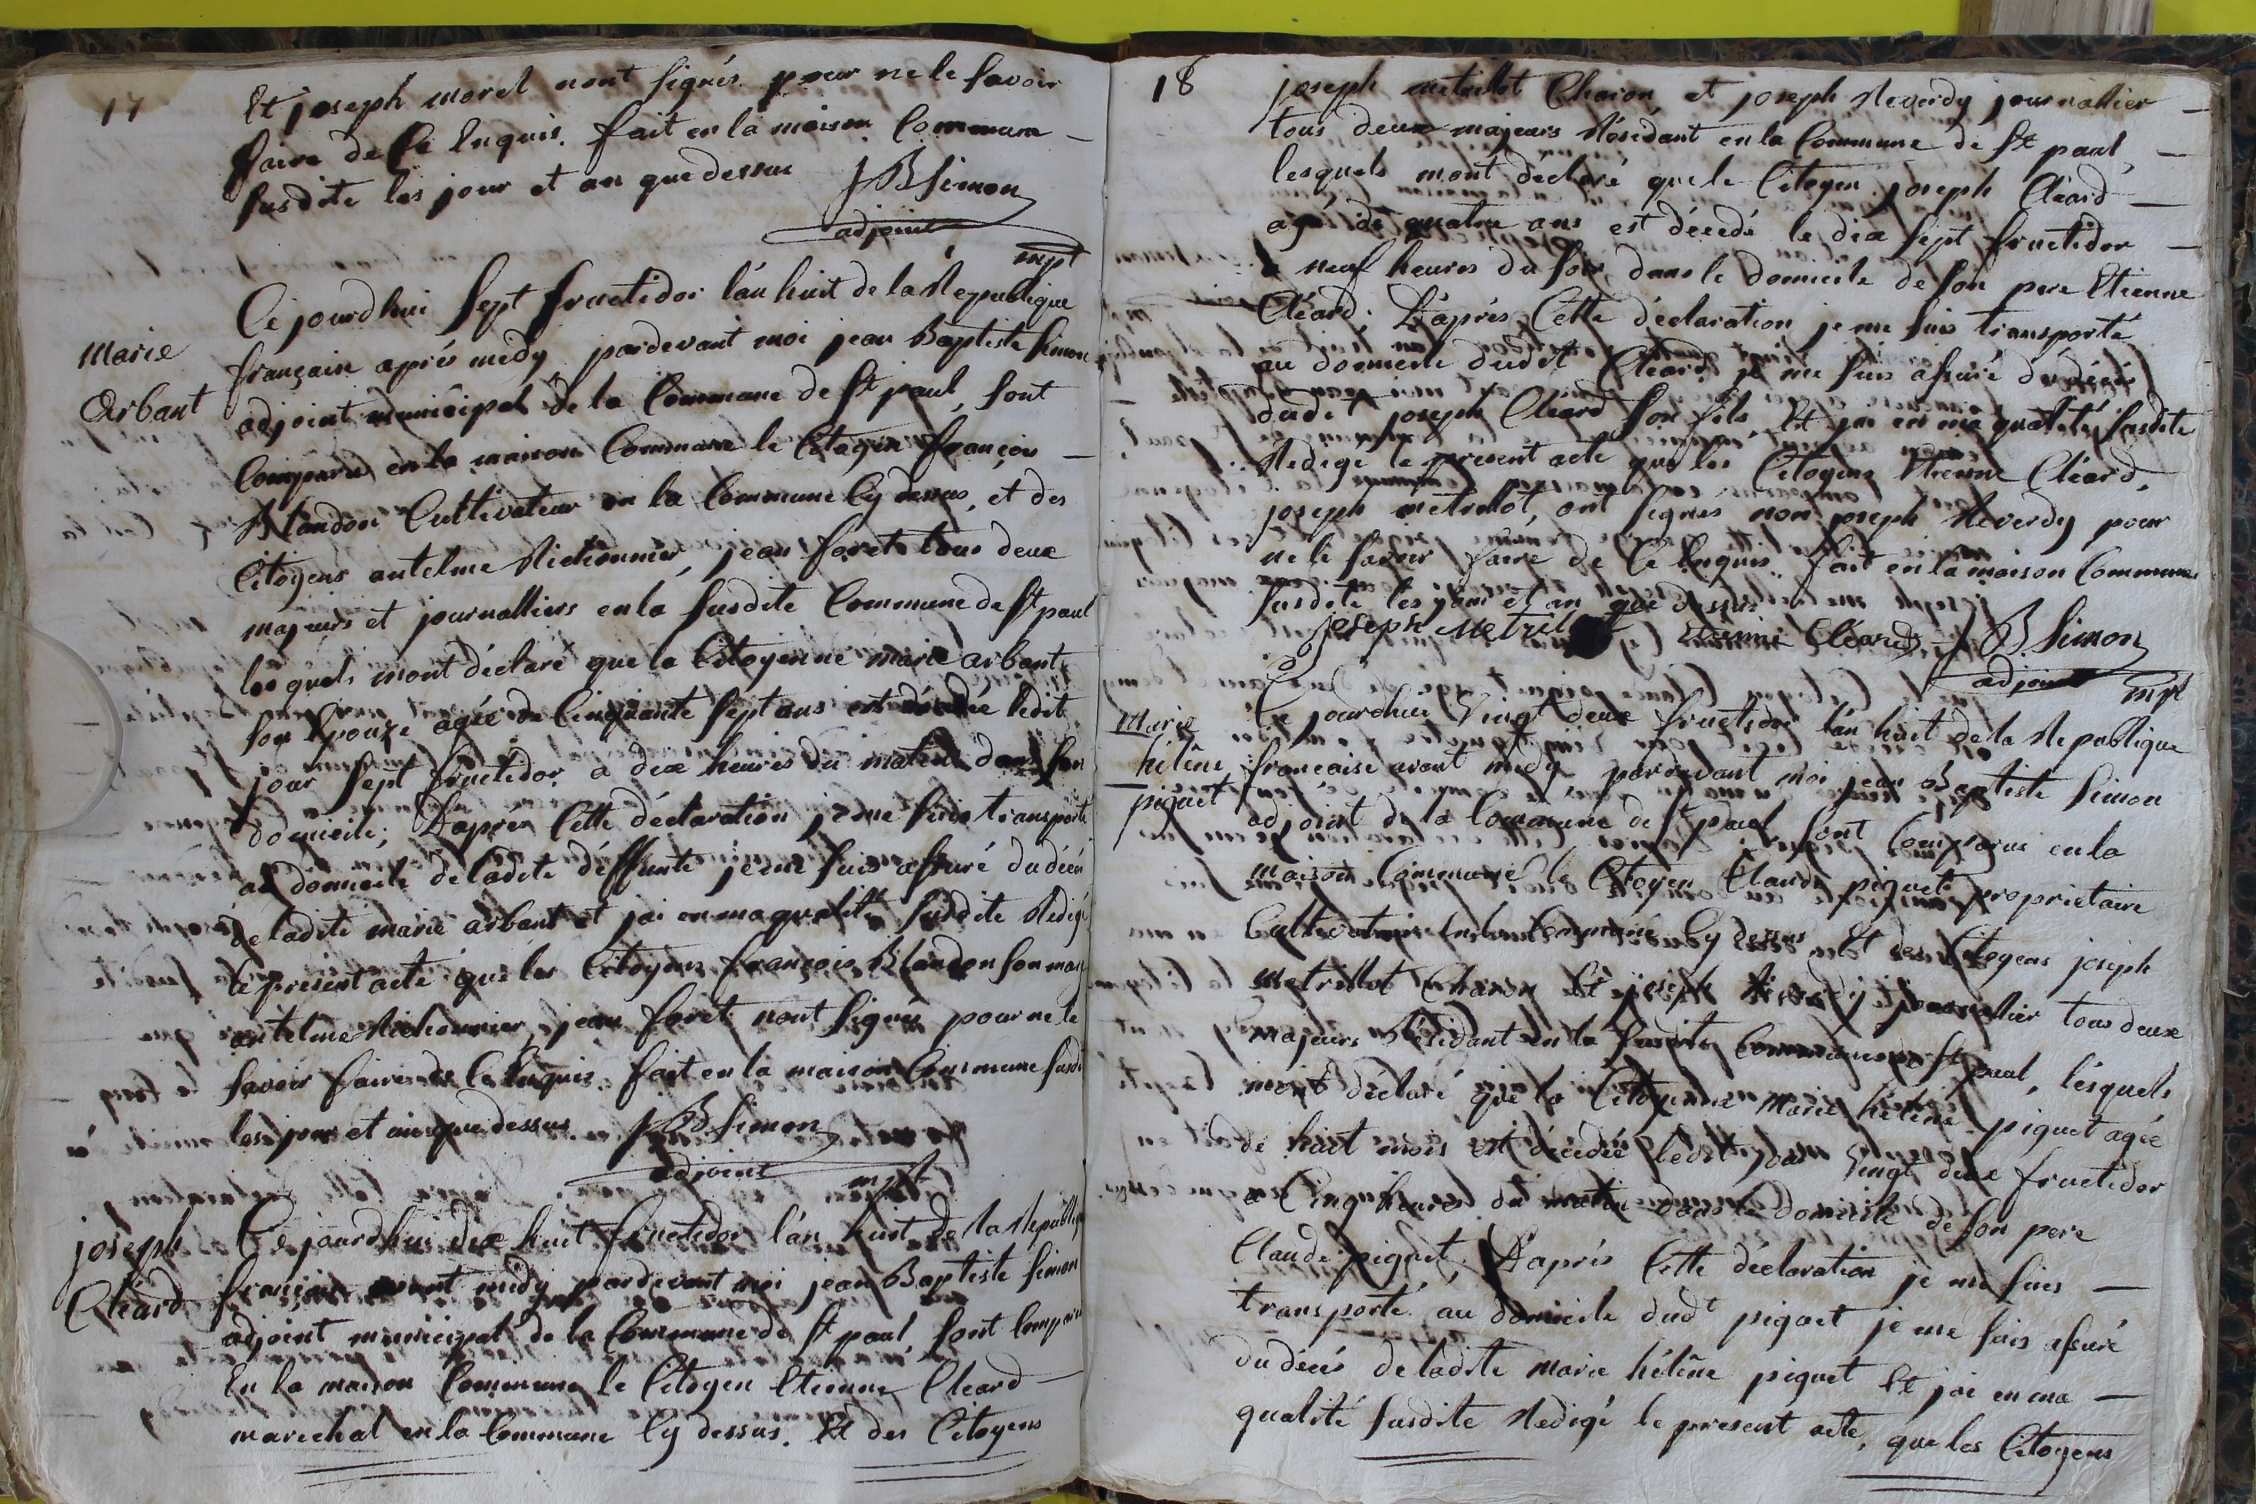 17
Et joseph morel nont signés pour ne le savoir
faire de Ce Enquis. fait en la maison Commune
susdite les jour et an que dessus JB Simon
adjoint
mpl
Marie
Arbant
Ce jourdhui sept fructidor l'an huit de la Republique
française après midy pardevant moi jean Baptiste Simon
adjoint municipal de la Commune de St paul, sont
Comparus en la maison Commune le Citoyen françois
Blandon Cultivateur en la Commune Cy dessus, et des
Citoyens antelme jean foret tous deux
majeurs et journalliers en la susdite Commune de St paul
les quels mont déclaré que la Citoyenne marie arbant
son Epouze agée de Cinquante sept ans est décédée ledit
jour sept fructidor a dix heures du matin dans son
domicile; D'apres Cette déclaration je me suis transporté
au domicile de ladite deffunte je me suis assuré du décés
de ladite marie arbant et jai en ma qualité susdite Redigé
le présent acte que les Citoyens françois Blandon son mary
antelme jean foret nont signés pour ne le
savoir faire de Ce Enquis. fait en la maison Commune susdite
les jour et an que dessus. JB Simon
adjoint mpl
joseph
Cléard
Ce jourdhui dix huit fructidor l'an huit de la Republique
française avant midy pardevant moi jean Baptiste Simon
adjoint municipal de la Commune de St paul, sont Comparus
En la maison Commune le Citoyen Etienne Cleard
marechal en la Commune Cy dessus. Et des Citoyens
18
joseph metrillot Charon, et joseph Reverdy journallier
tous deux majeurs Résidant en la Commune de St paul,
lesquels mont déclaré que le Citoyen joseph Cléard
agé de quatre ans est décedé le dix sept fructidor
a neuf heures du soir dans le domicile de son pere Etienne
Cléard; D'après Cette déclaration je me suis transporté
au domicile dudit Cléard je me suis assuré du décés
dudit joseph Cléard son fils, Et jai en ma qualité susdite
Redigé le present acte que les Citoyens Etienne Cléard,
joseph metrillot, ont signés non joseph Reverdy pour
ne le savoir faire de Ce Enquis. fait en la maison Commune
susdite les jour et an que dessus
joseph Metril Etienne Cléard JB Simon
adjoint mpl
Marie
hélène
piquet
Ce jourdhui Vingt deux fructidor l'an huit de la Republique
francaise avant midy pardevant moi jean Baptiste Simon
adjoint de la Commune de St paul sont Comparus en la
maison Commune le Citoyen Claude piquet proprietaire
Cultivateur en la Commune Cy dessus Et des Citoyens joseph
metrillot Charon Et joseph Reverdy journallier tous deux
majeurs Résidant en la susdite Commune de St paul, lesquels
mont déclaré que la Citoyenne Marie hélène piquet agée
de huit mois est décédée ledit jour Vingt deux fructidor
a Cinq heures du matin dans le domicile de son pere
Claude piquet, D'après Cette déclaration je me suis
transporté au domicile dudt piquet je me suis assuré
du décés de ladite marie hélène piquet Et jai en ma
qualité susdite Redigé le present acte, que les Citoyens